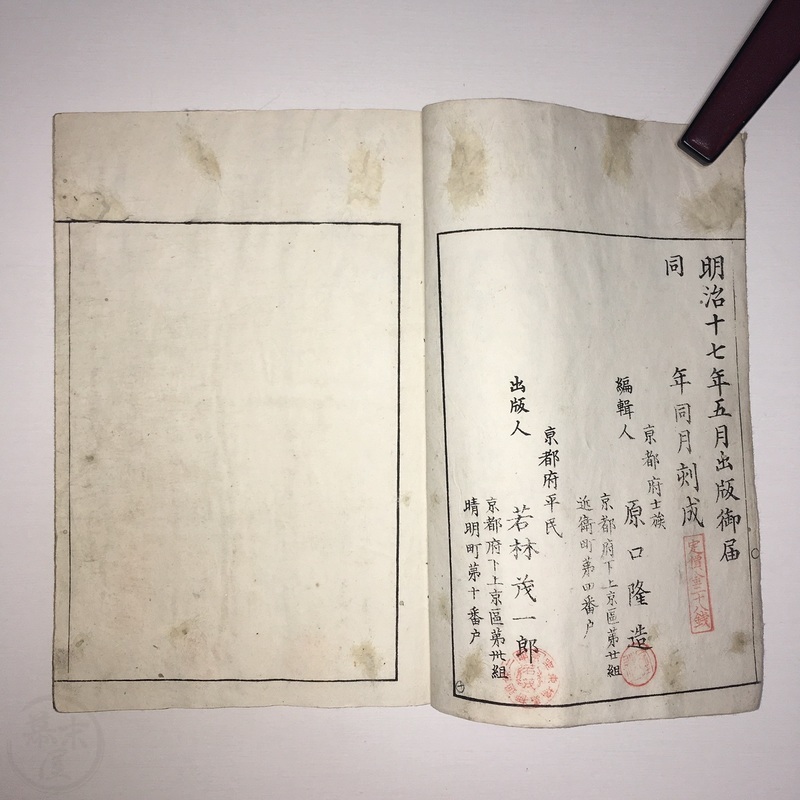 明治十七年五月出版御届
同年同月刻成
定價金十八錢
編輯人
京都府士族
原口隆造
京都府下上京區第廿組
近衛町第四番戸
出版人
京都府平民
若林茂一郎
京都府下上京區第卅組
晴明町第十番戸